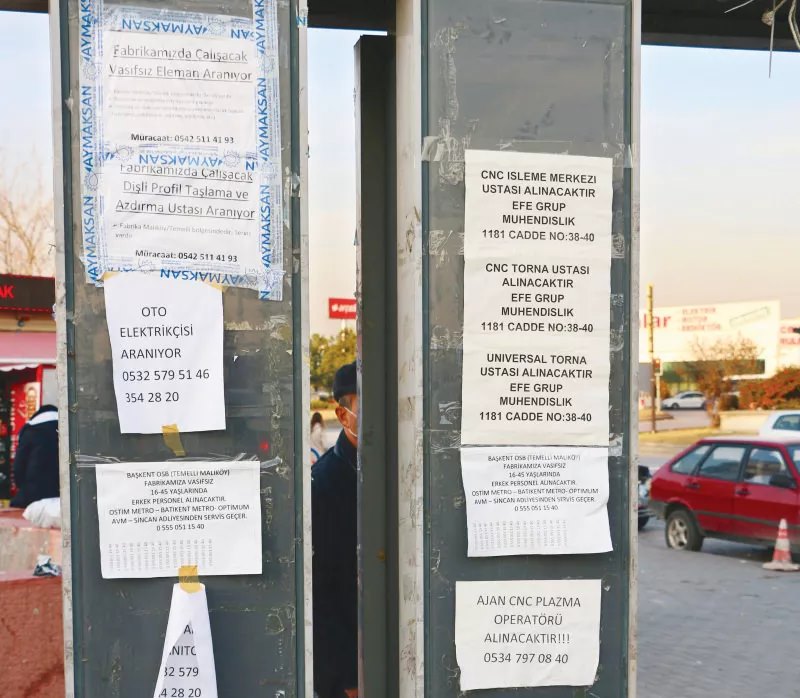 AYMAKSAN
AYMAKSAN
Fabrikamızda Çalışacak
Vasıfsız Eleman Aranıyor
Müracaat: 0542 511 41 93
AYMAKSAN
Fabrikamızda Çalışacak
Dişli Profil Taşlama ve
Azdırma Ustası Aranıyor
Fabrika Malıköy/Temelli bölgesindedir. Servis
vardır
Müracaat: 0542 511 41 93
AYMAKSAN
AYMAKSAN
AYMAKSAN
OTO
ELEKTRİKÇİSİ
ARANIYOR
0532 579 51 46
354 28 20
BAŞKENT OSB (TEMELLI MALIKÖY)
FABRIKAMIZA VASIFSIZ
16-45 YAŞLARINDA
ERKEK PERSONEL ALINACAKTIR.
OSTİM METRO – BATIKENT METRO- OPTİMUM
AVM – SİNCAN ADLİYESİNDEN SERVİS GEÇER.
0 555 051 15 40
NITO
32 579
4 28 20
CNC ISLEME MERKEZI
USTASI ALINACAKTIR
EFE GRUP
MUHENDISLIK
1181 CADDE NO:38-40
CNC TORNA USTASI
ALINACAKTIR
EFE GRUP
MUHENDISLIK
1181 CADDE NO:38-40
UNIVERSAL TORNA
USTASI ALINACAKTIR
EFE GRUP
MUHENDISLIK
1181 CADDE NO:38-40
BAŞKENT OSB (TEMELLI MALIKÖY)
FABRIKAMIZA VASIFSIZ
16-45 YAŞLARINDA
ERKEK PERSONEL ALINACAKTIR.
OSTİM METRO – BATIKENT METRO- OPTİMUM
AVM – SİNCAN ADLİYESİNDEN SERVİS GEÇER.
0 555 051 15 40
AJAN CNC PLAZMA
OPERATÖRÜ
ALINACAKTIR!!!
0534 797 08 40
AK
lar
ELEKTRİK
MOTOR